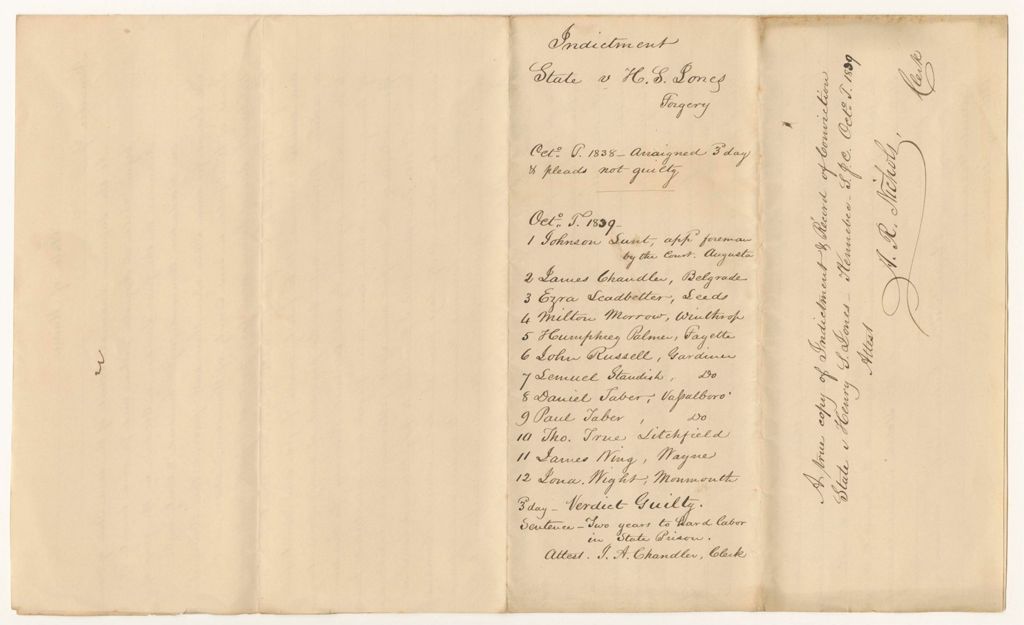 Indictment
State v H. S. Jones
Forgery
Octo. T. 1838 - Arraigned 3 day
& pleads not guilty
Octo. T. 1839 -
1 Johnson Lunt, app foreman
by the Court. Augusta
2 James Chandler, Belgrade
3 Ezra Leadbetter, Leeds
4 Milton Morrow, Winthrop
5 Humphrey Palmer, Fayette
6 John Russell, Gardiner
7 Lemuel Standish, Do
8 Daniel Taber, Vassalboro'
9 Paul Taber, Do
10 Tho. True Litchfield
11 James Wing, Wayne
12 Jona. Wight, Monmouth
3 day - Verdict Guilty.
Sentence - Two years to hard labor
in State Prison.
Attest. J. A. Chandler, Clerk
A true copy of Indictment & Record of Conviction
State v Henry S. Jones - Kennebec - S.J.C. Octo. T. 1839
Attest
A. R. Nichols, Clerk